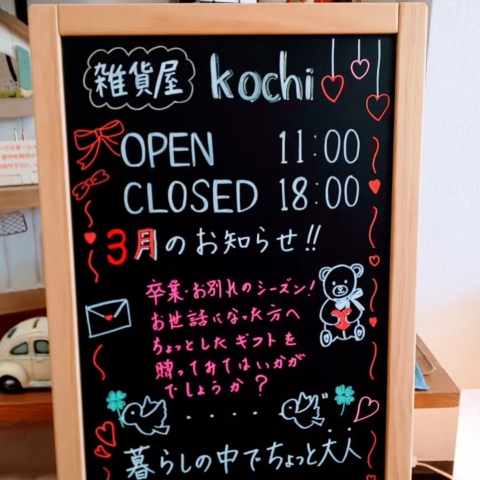 雑貨屋 kochi
OPEN 11:00
CLOSED 18:00
3月のお知らせ!!
卒業・お別れのシーズン!
お世話になった方へ
ちょっとしたギフトを
贈ってみてはいかが
でしょうか?
暮らしの中でちょっと大人